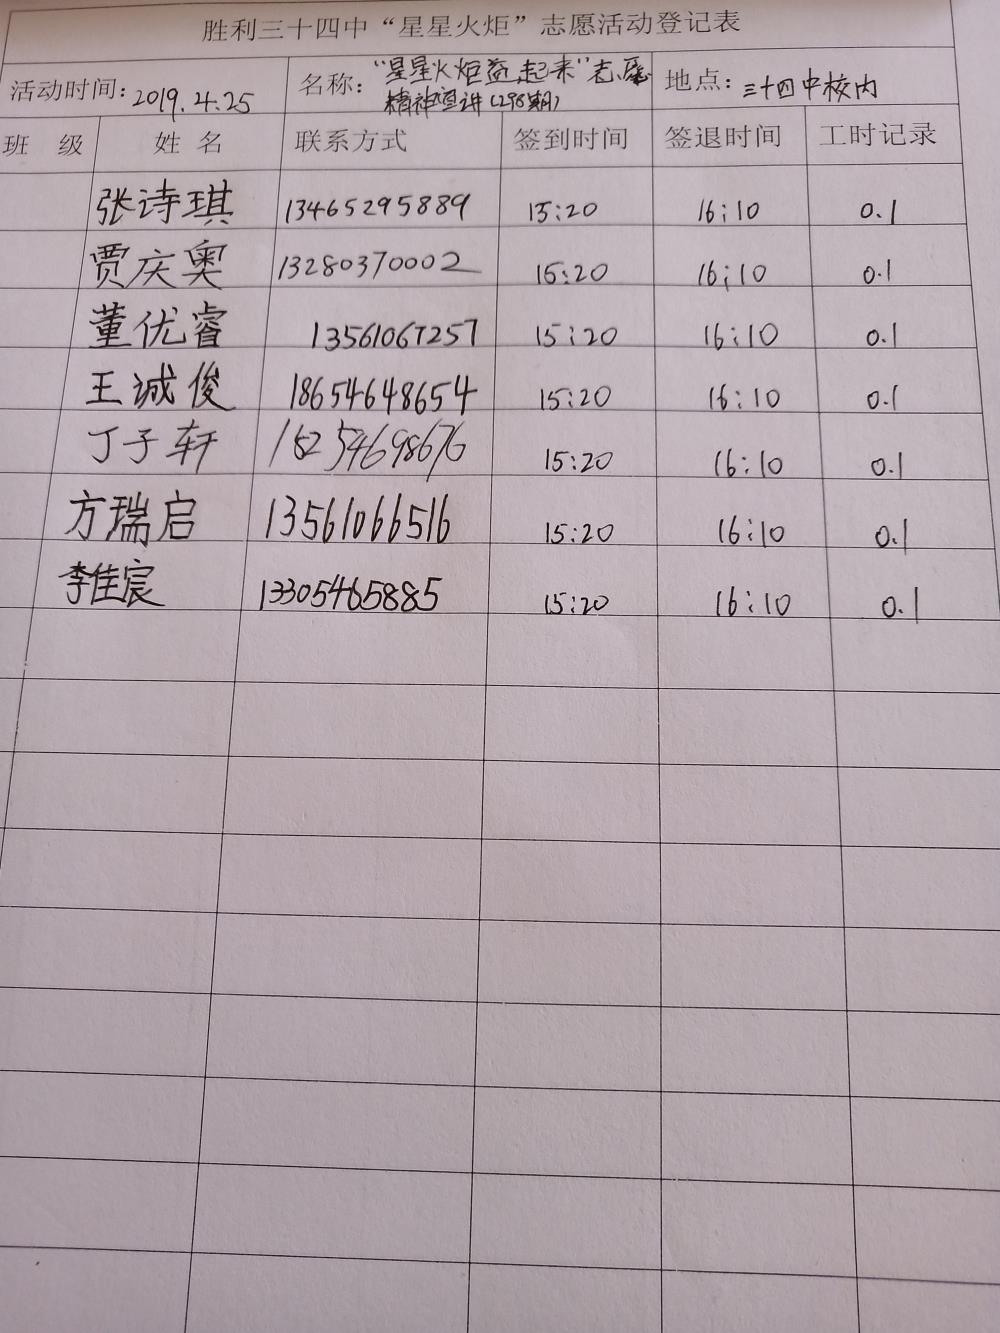 胜利三十四中“星星火炬”志愿活动登记表
活动时间：2019.4.25 名称：“星星火炬益起来”志愿精神宣讲（298期） 地点：三十四中校内
班 级 姓 名 联系方式 签到时间 签退时间 工时记录
张诗琪 13465295889 15:20 16:10 0.1
贾庆奥 13280370002 15:20 16:10 0.1
董优睿 13561067257 15:20 16:10 0.1
王诚俊 18654648654 15:20 16:10 0.1
丁子轩 15254698676 15:20 16:10 0.1
方瑞启 13561066516 15:20 16:10 0.1
李佳宸 13305465885 15:20 16:10 0.1